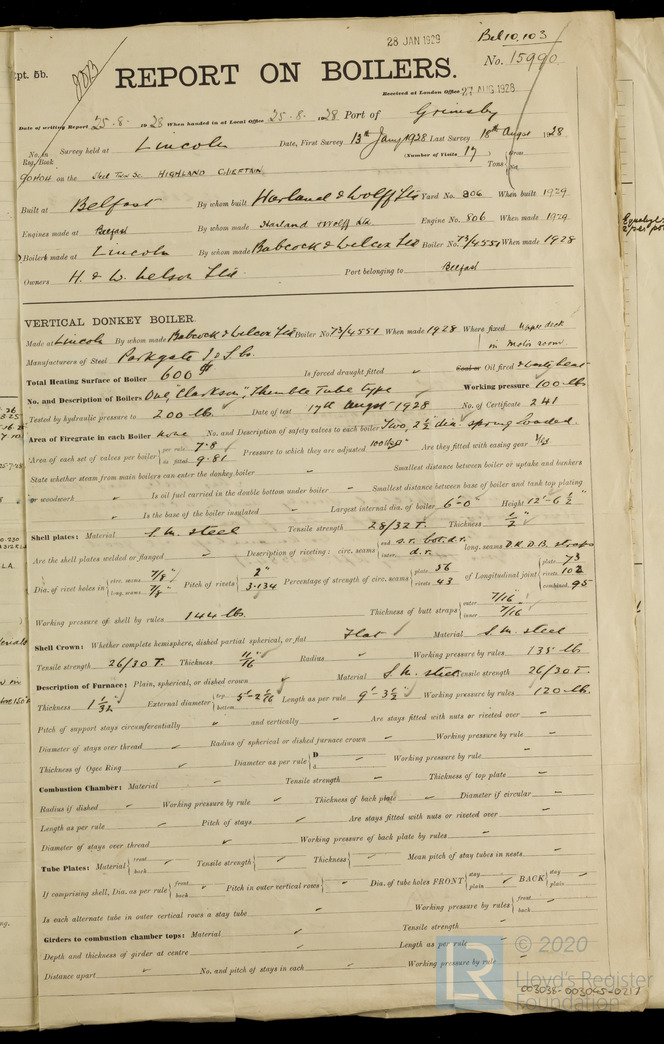 28 JAN 1929
Bel 10,103
Rpt. 5b.
No. 15990
REPORT ON BOILERS.
Received at London Office 27 AUG 1928
Date of writing Report 25.8. 1928 When handed in at Local Office 25.8. 1928 Port of Grimsby
No. in Reg. Book Survey held at Lincoln Date, First Survey 13th Jany 1928 Last Survey 18th August 1928
(Number of Visits 17) Tons Gross Net
90404 on the Steel Twin Sc. HIGHLAND CHIEFTAIN
Built at Belfast By whom built Harland & Wolff Ltd Yard No. 806 When built 1929
Engines made at Belfast By whom made Harland & Wolff Ltd. Engine No. 806 When made 1929
Boilers made at Lincoln By whom made Babcock & Wilcox Ltd Boiler No. 73/4551 When made 1928
Owners H. & W. Nelson Ltd Port belonging to Belfast
VERTICAL DONKEY BOILER.
Made at Lincoln By whom made Babcock & Wilcox Ltd Boiler No. 73/4551 When made 1928 Where fixed Upper deck in Motor room
Manufacturers of Steel Parkgate I. & S. Co.
Total Heating Surface of Boiler 600 Is forced draught fitted Coal or Oil fired & waste heat
No. and Description of Boilers One, "Clarkson", Thimble Tube type Working pressure 100 lb
Tested by hydraulic pressure to 200 lb. Date of test 17th August 1928 No. of Certificate 241
Area of Firegrate in each Boiler None No. and Description of safety valves to each boiler Two, 2½" dia. spring loaded.
Area of each set of valves per boiler per rule 7.8 as fitted 9.81 Pressure to which they are adjusted 100 lbs Are they fitted with easing gear Yes
State whether steam from main boilers can enter the donkey boiler Smallest distance between boiler or uptake and bunkers
or woodwork Is oil fuel carried in the double bottom under boiler Smallest distance between base of boiler and tank top plating
Is the base of the boiler insulated Largest internal dia. of boiler 6'-0" Height 12'-6½"
Shell plates: Material S.M. steel Tensile strength 28/32 T. Thickness ½"
Are the shell plates welded or flanged Description of riveting: circ. seams end s.r. bot. d.r. inter. d.r. long. seams D.R.D.B. straps
Dia. of rivet holes in circ. seams 7/8" long. seams 7/8" Pitch of rivets 2" 3.134 Percentage of strength of circ. seams plate 56 rivets 43 of Longitudinal joint plate 73 rivets 102 combined 95
Working pressure of shell by rules 144 lb. Thickness of butt straps outer 7/16" inner 7/16"
Shell Crown: Whether complete hemisphere, dished partial spherical, or flat Flat Material S.M. steel
Tensile strength 26/30 T. Thickness 11/16" Radius Working pressure by rules 135 lb
Description of Furnace: Plain, spherical, or dished crown Material S.M. steel Tensile strength 26/30 T.
Thickness 1 1/32" External diameter top bottom 5'-2 1/16" Length as per rule 9'-3½" Working pressure by rules 120 lb.
Pitch of support stays circumferentially and vertically Are stays fitted with nuts or riveted over
Diameter of stays over thread Radius of spherical or dished furnace crown Working pressure by rule
Thickness of Ogee Ring Diameter as per rule D d Working pressure by rule
Combustion Chamber: Material Tensile strength Thickness of top plate
Radius if dished Working pressure by rule Thickness of back plate Diameter if circular
Length as per rule Pitch of stays Are stays fitted with nuts or riveted over
Diameter of stays over thread Working pressure of back plate by rules
Tube Plates: Material front back Tensile strength Thickness Mean pitch of stay tubes in nests
If comprising shell, Dia. as per rule front back Pitch in outer vertical rows Dia. of tube holes FRONT stay plain BACK stay plain
Is each alternate tube in outer vertical rows a stay tube Working pressure by rules front back
Girders to combustion chamber tops: Material Tensile strength
Depth and thickness of girder at centre Length as per rule
Distance apart No. and pitch of stays in each Working pressure by rule
© 2020
Lloyd's Register
Foundation
003038-003045-0217